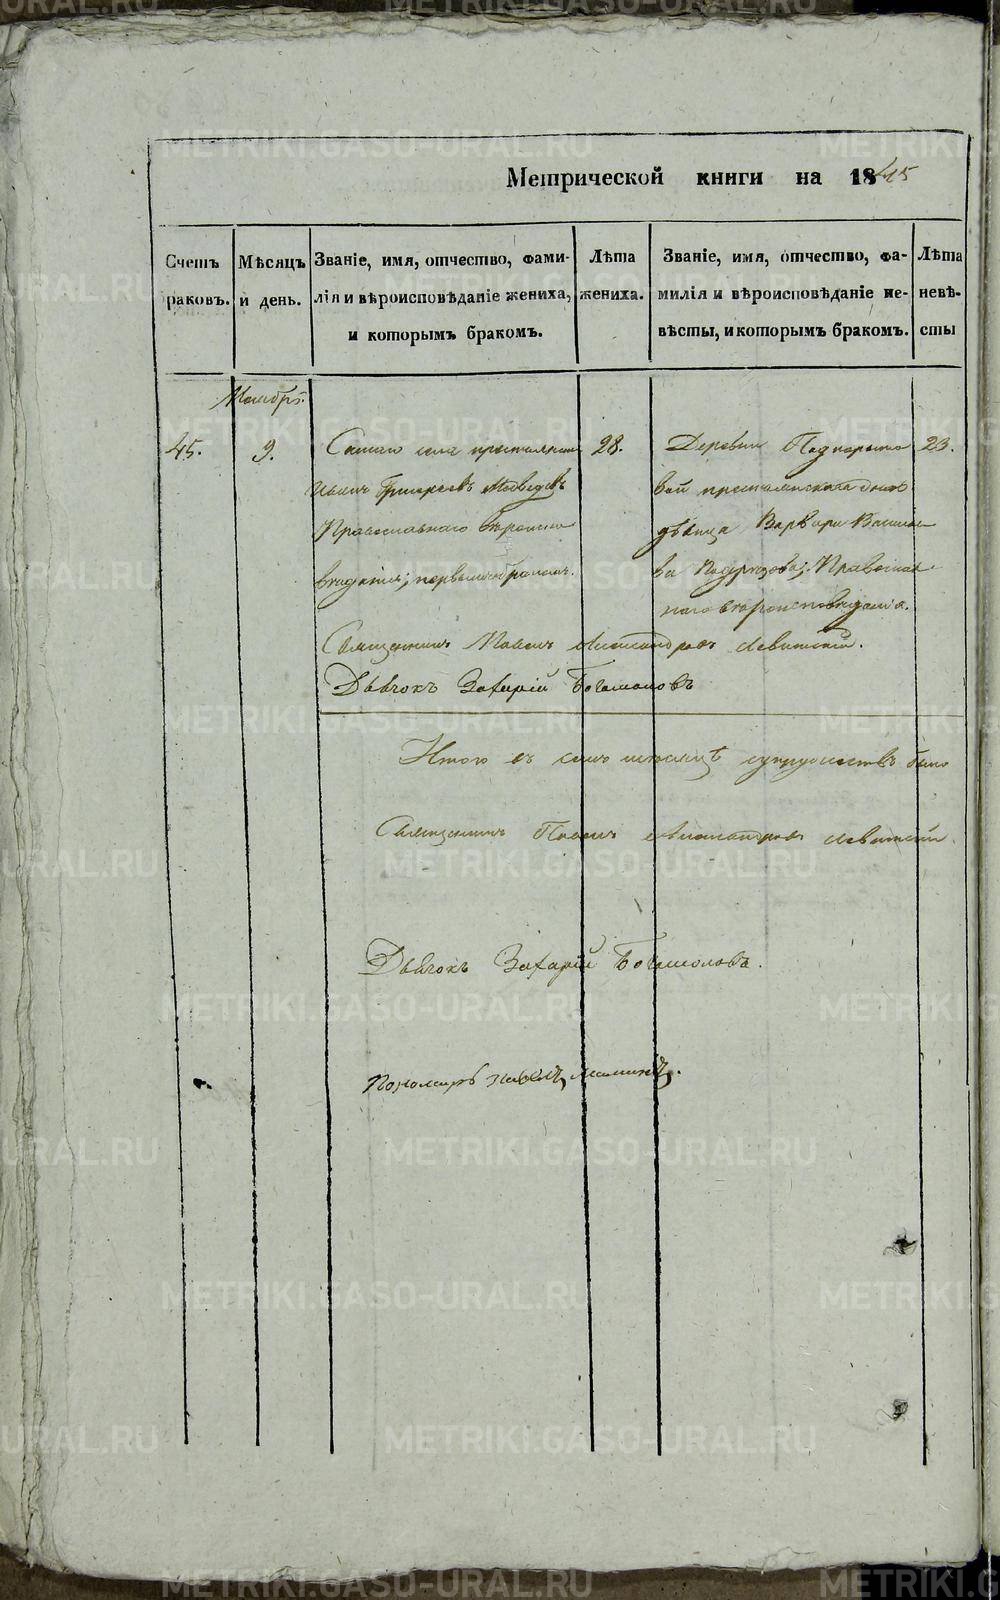 Метрической книги на 1845
Счетъ
раковъ.
Мѣсяцъ
и день.
Званіе, имя, отчество, фами-
лія и вѣроисповѣданіе жениха,
и которымъ бракомъ.
Лѣта
жениха.
Званіе, имя, отчество, фа-
милія и вѣроисповѣданіе не-
вѣсты, и которымъ бракомъ.
Лѣта
невѣ-
сты
Ноября.
45.
9.
села
Иванъ Григорьевъ Медведевъ
Православнаго вѣроиспо
вѣданія; первымъ бракомъ.
28.
Деревни
дочь
дѣвица Варвара Василье
ва Православ
наго вѣроисповѣданія.
23.
Священникъ Павелъ Александровъ Левитскій.
Дьячокъ Захарій Богомоловъ
Итого въ семъ мѣсяцѣ супружествъ было
Священникъ Павелъ Александровъ Левитскій.
Дьячокъ Захарій Богомоловъ.
Пономарь Павелъ
METRIKI.GASO-URAL.RU